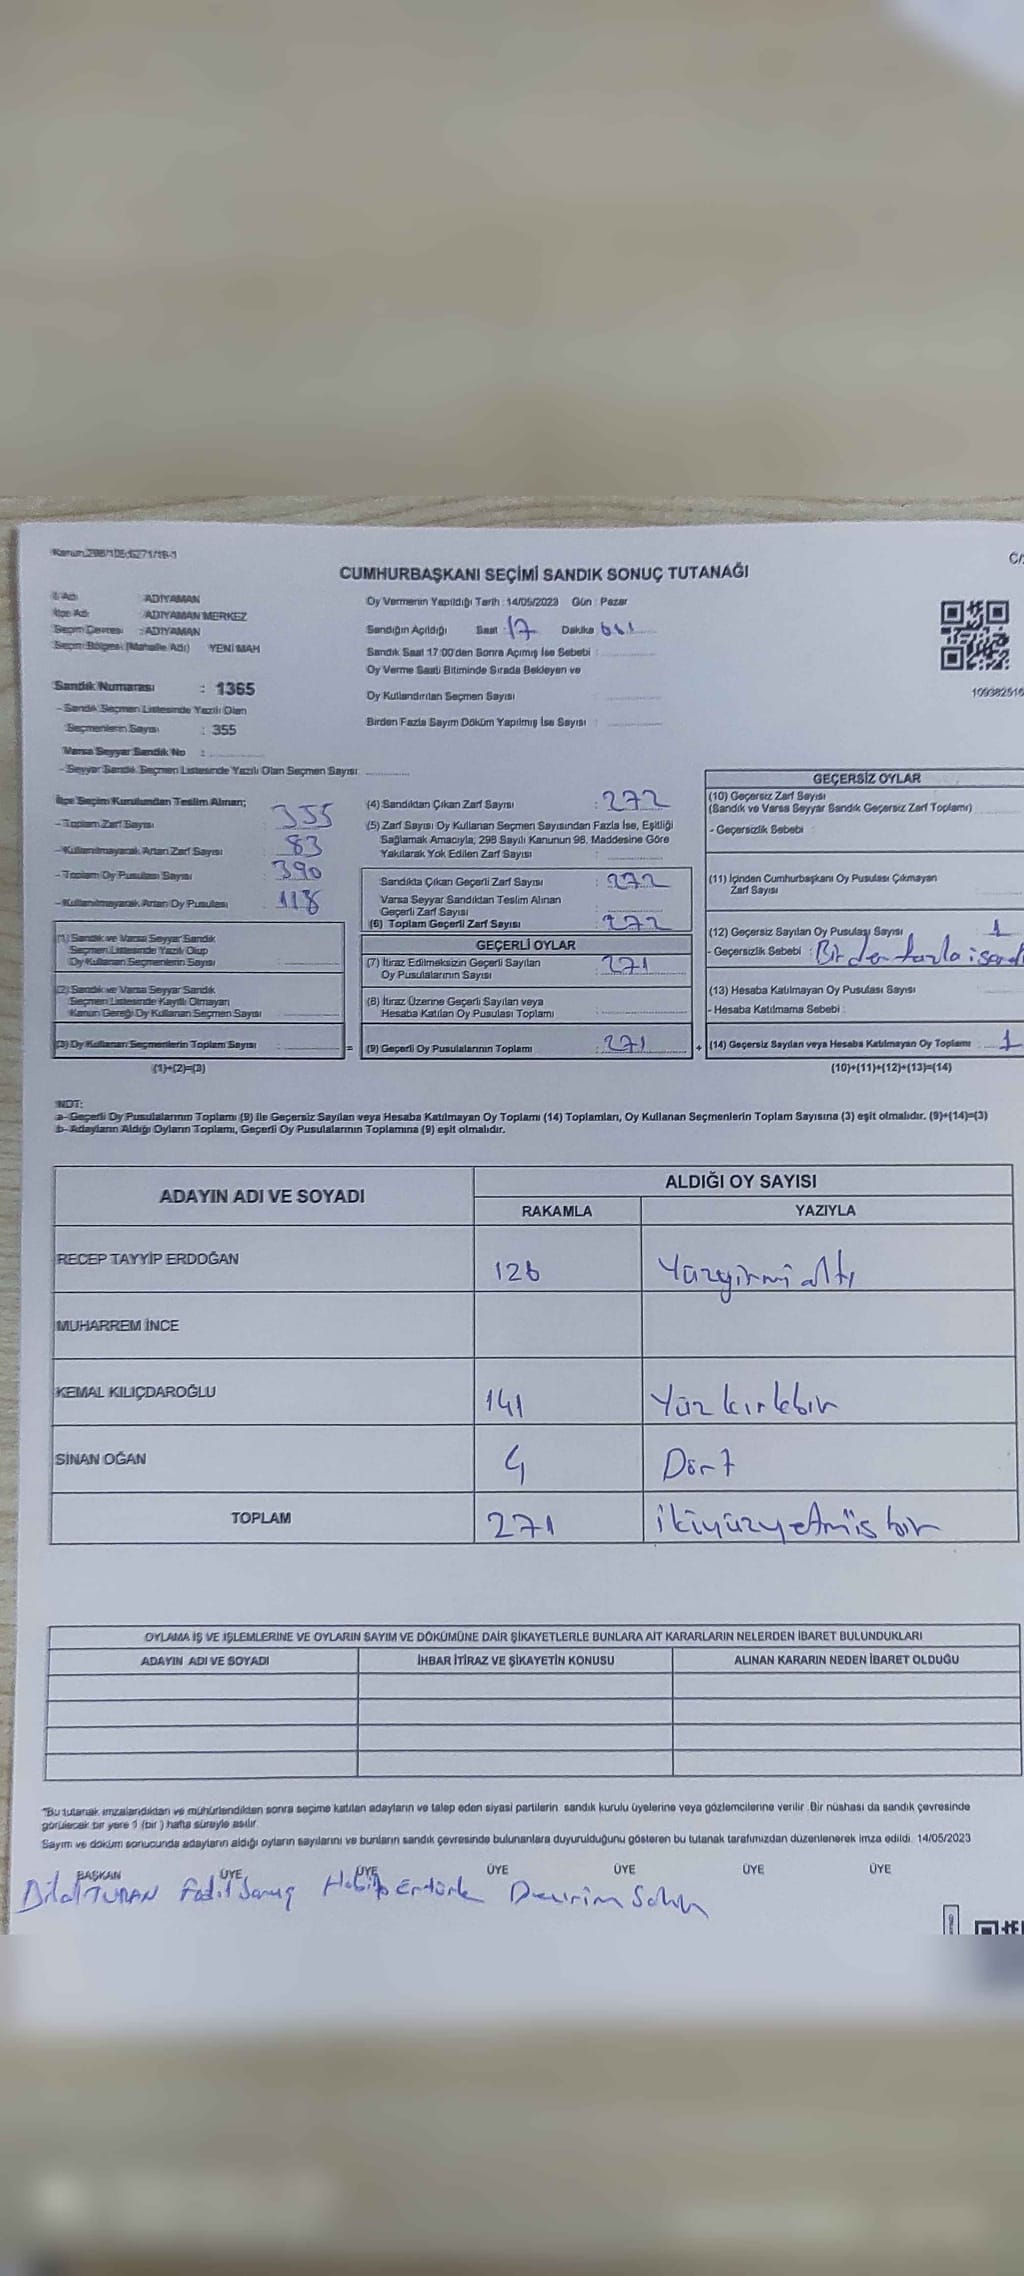 Kanun:298/105;6271/18-1
CUMHURBAŞKANI SEÇİMİ SANDIK SONUÇ TUTANAĞI
C/
İl Adı : ADIYAMAN
İlçe Adı : ADIYAMAN MERKEZ
Seçim Çevresi : ADIYAMAN
Seçim Bölgesi (Mahalle Adı) YENİ MAH
Oy Vermenin Yapıldığı Tarih : 14/05/2023 Gün : Pazar
Sandığın Açıldığı Saat : 17 Dakika
Sandık Saat 17:00'den Sonra Açmış İse Sebebi :
Oy Verme Saati Bitiminde Sırada Bekleyen ve
Oy Kullandırılan Seçmen Sayısı
Birden Fazla Sayım Döküm Yapılmış İse Sayısı :
109382516
Sandık Numarası : 1365
- Sandık Seçmen Listesinde Yazılı Olan
Seçmenlerin Sayısı : 355
Varsa Seyyar Sandık No :
- Seyyar Sandık Seçmen Listesinde Yazılı Olan Seçmen Sayısı:
İlçe Seçim Kurulundan Teslim Alınan;
- Toplam Zarf Sayısı : 355
- Kullanılmayarak Artan Zarf Sayısı : 83
- Toplam Oy Pusulası Sayısı : 390
- Kullanılmayarak Artan Oy Pusulası : 118
(1) Sandık ve Varsa Seyyar Sandık
Seçmen Listesinde Yazılı Olup
Oy Kullanan Seçmenlerin Sayısı :
(2) Sandık ve Varsa Seyyar Sandık
Seçmen Listesinde Kayıtlı Olmayan
Kanun Gereği Oy Kullanan Seçmen Sayısı :
(3) Oy Kullanan Seçmenlerin Toplam Sayısı : =
(1)+(2)=(3)
(4) Sandıktan Çıkan Zarf Sayısı : 272
(5) Zarf Sayısı Oy Kullanan Seçmen Sayısından Fazla İse, Eşitliği
Sağlamak Amacıyla; 298 Sayılı Kanunun 98. Maddesine Göre
Yakılarak Yok Edilen Zarf Sayısı :
Sandıkta Çıkan Geçerli Zarf Sayısı : 272
Varsa Seyyar Sandıktan Teslim Alınan
Geçerli Zarf Sayısı :
(6) Toplam Geçerli Zarf Sayısı : 272
GEÇERLİ OYLAR
(7) İtiraz Edilmeksizin Geçerli Sayılan
Oy Pusulalarının Sayısı : 271
(8) İtiraz Üzerine Geçerli Sayılan veya
Hesaba Katılan Oy Pusulası Toplamı :
(9) Geçerli Oy Pusulalarının Toplamı : 271 +
GEÇERSİZ OYLAR
(10) Geçersiz Zarf Sayısı
(Sandık ve Varsa Seyyar Sandık Geçersiz Zarf Toplamı)
- Geçersizlik Sebebi :
(11) İçinden Cumhurbaşkanı Oy Pusulası Çıkmayan
Zarf Sayısı
(12) Geçersiz Sayılan Oy Pusulası Sayısı 1
- Geçersizlik Sebebi : Birden fazla
(13) Hesaba Katılmayan Oy Pusulası Sayısı
- Hesaba Katılmama Sebebi :
(14) Geçersiz Sayılan veya Hesaba Katılmayan Oy Toplamı : 1
(10)+(11)+(12)+(13)=(14)
NOT:
a- Geçerli Oy Pusulalarının Toplamı (9) ile Geçersiz Sayılan veya Hesaba Katılmayan Oy Toplamı (14) Toplamları, Oy Kullanan Seçmenlerin Toplam Sayısına (3) eşit olmalıdır. (9)+(14)=(3)
b- Adayların Aldığı Oyların Toplamı, Geçerli Oy Pusulalarının Toplamına (9) eşit olmalıdır.
ADAYIN ADI VE SOYADI ALDIĞI OY SAYISI
RAKAMLA YAZIYLA
RECEP TAYYİP ERDOĞAN 126 Yüzyirmi altı
MUHARREM İNCE
KEMAL KILIÇDAROĞLU 141 Yüz kırkbir
SİNAN OĞAN 4 Dört
TOPLAM 271 ikiyüzyetmiş bir
OYLAMA İŞ VE İŞLEMLERİNE VE OYLARIN SAYIM VE DÖKÜMÜNE DAİR ŞİKAYETLERLE BUNLARA AİT KARARLARIN NELERDEN İBARET BULUNDUKLARI
ADAYIN ADI VE SOYADI İHBAR İTİRAZ VE ŞİKAYETİN KONUSU ALINAN KARARIN NEDEN İBARET OLDUĞU
"Bu tutanak imzalandıktan ve mühürlendikten sonra seçime katılan adayların ve talep eden siyasi partilerin sandık kurulu üyelerine veya gözlemcilerine verilir. Bir nüshası da sandık çevresinde
görülecek bir yere 1 (bir) hafta süreyle asılır.
Sayım ve döküm sonucunda adayların aldığı oyların sayılarını ve bunların sandık çevresinde bulunanlara duyurulduğunu gösteren bu tutanak tarafımızdan düzenlenerek imza edildi. 14/05/2023
BAŞKAN ÜYE ÜYE ÜYE ÜYE ÜYE ÜYE
Bilal TURAN Fadıl Habip Ertürk Devrim